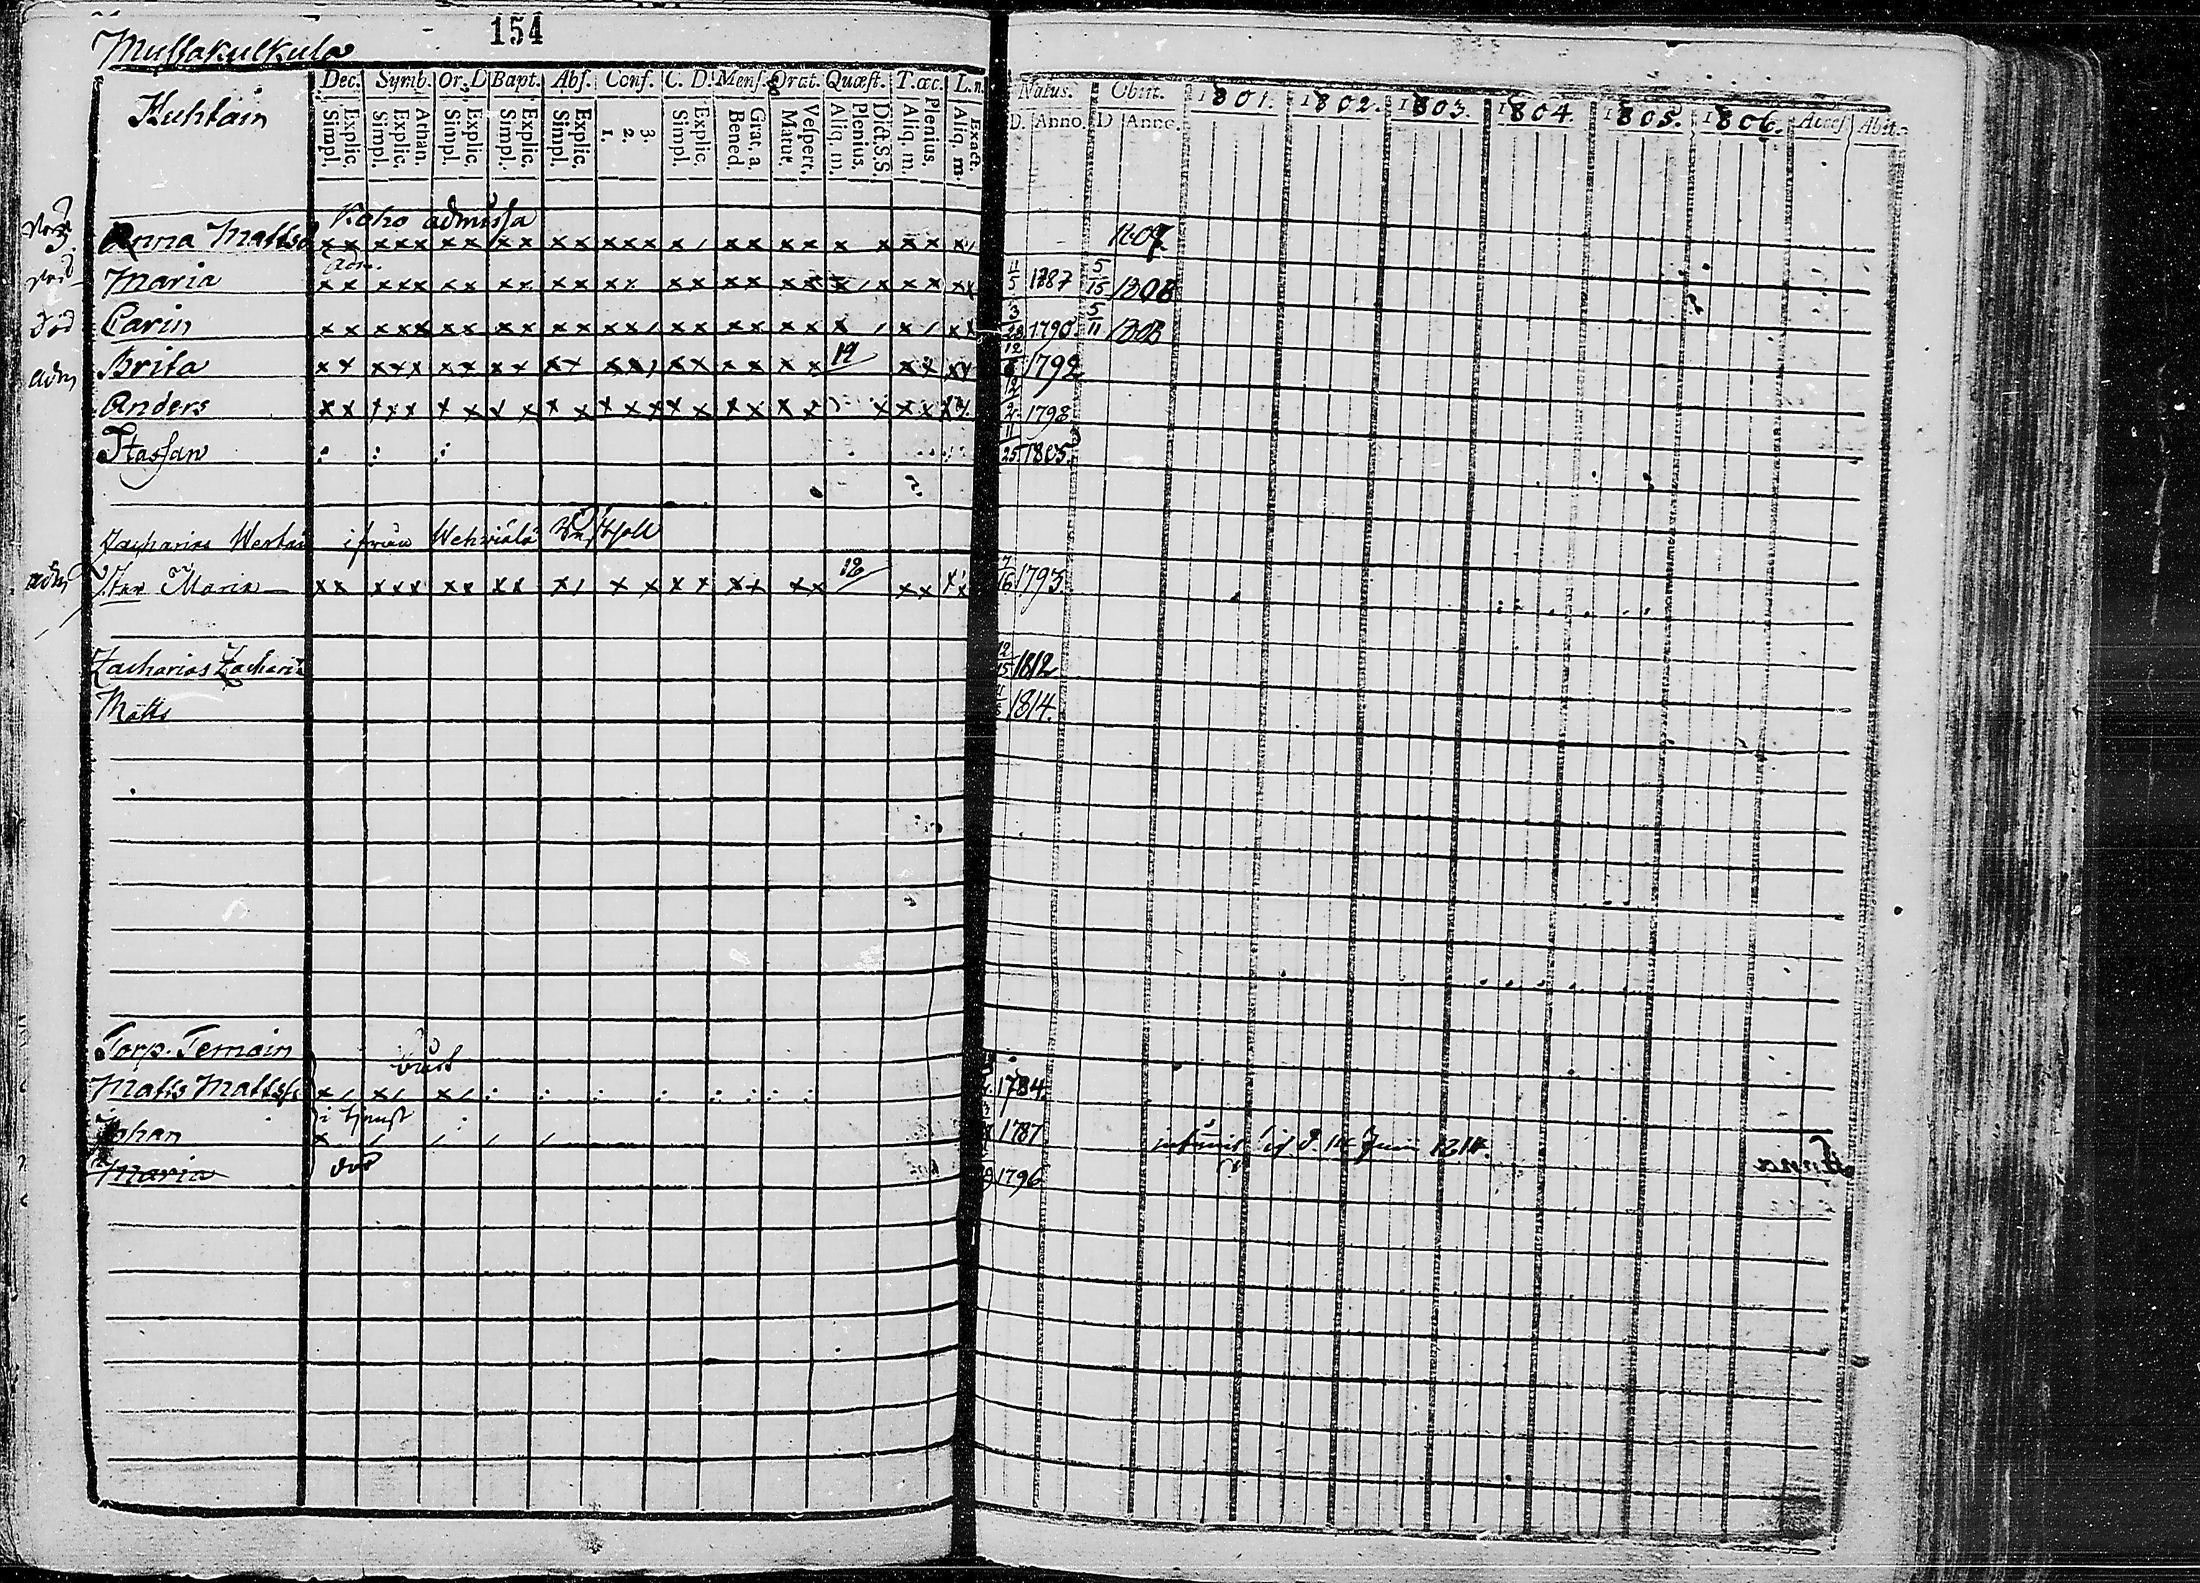 154
Mussakulkula
Kuhlain
Dec. Symb. Or. D Bapt. Abs. Conf. C. D. Mens. Orat. Quæst. T. œc. L. n.
Simpl. Explic. Simpl. Explic. Athan. Simpl. Explic. Simpl. Explic. Simpl. Explic. 1. 2. 3. Simpl. Explic. Bened. Grat. a. Matut. Vespert. Aliq. m. Plenius. Dict. S.S. Aliq. m. Plenius. Aliq. m. Exact.
Natus. Obiit. 1801. 1802. 1803. 1804. 1805. 1806. Access. Abit.
D. Anno. D Anno.
Koho admissa
Anna Mattsd x x x x x x x x x x x x x x x x x x x x x x x x x x 1809
adm.
Maria x x x x x x x x x x x x x x x x x x x x x x x x x 4/5 1787 5/15 1808
död Carin x x x x x x x x x x x x x x x x x x x x x x x 3/28 1790 5/11 1808
adm Brita x x x x x x x x x x x x x x x x x x x 19 x x x x 12/6 1792
Anders x x x x x x x x x x x x x x x x x x x x x x x x 1798
Staffan 11/25 1805.
Zacharias ifrån
adm Maria x x x x x x x x x x x x x x x x x x 12 x x x x 7/16 1793
Zacharias Zachari 12/15 1812
Matts 1814.
Torp. Temain
Matts Mattss x x x 1784.
i tjenst
Johan x 1787 d. 14 Juni 1814.
Maria död 1796